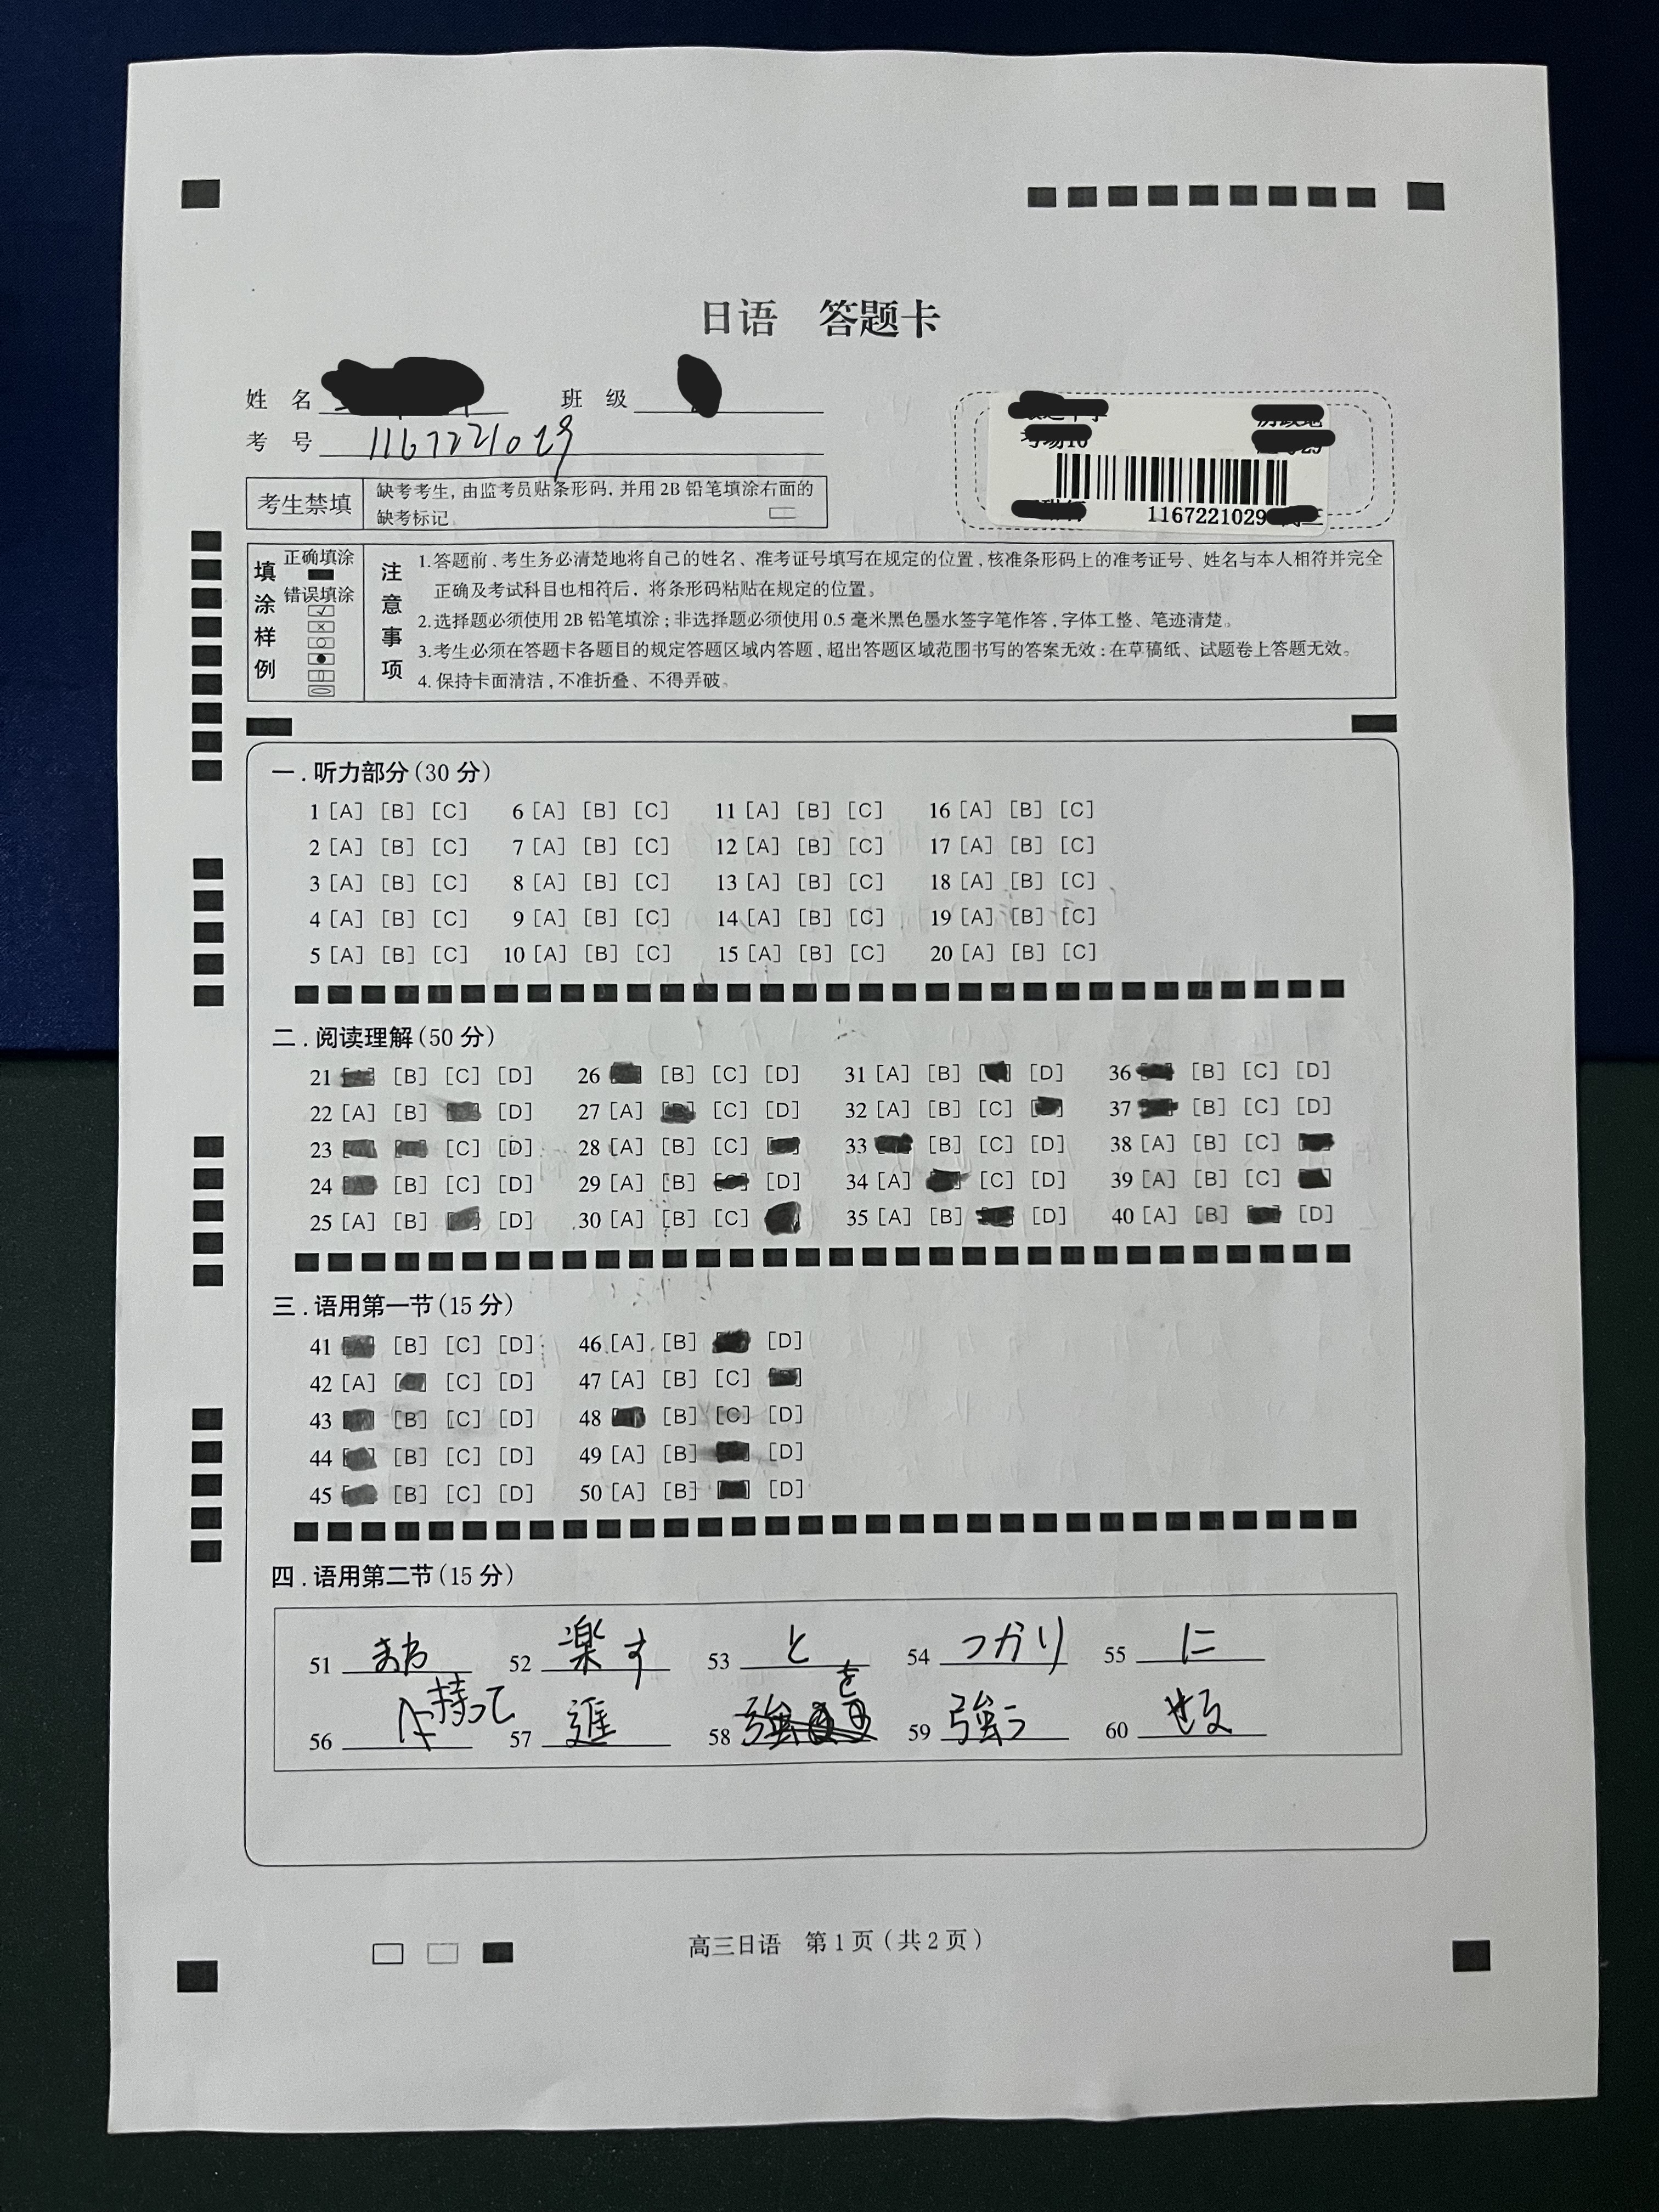 日语 答题卡
姓 名 班 级
考 号 1167221029
1167221029
考生禁填 缺考考生,由监考员贴条形码,并用2B铅笔填涂右面的
缺考标记
填涂样例
正确填涂
错误填涂
注意事项
1.答题前、考生务必清楚地将自己的姓名、准考证号填写在规定的位置,核准条形码上的准考证号、姓名与本人相符并完全
正确及考试科目也相符后,将条形码粘贴在规定的位置。
2.选择题必须使用2B铅笔填涂;非选择题必须使用0.5毫米黑色墨水签字笔作答,字体工整、笔迹清楚。
3.考生必须在答题卡各题目的规定答题区域内答题,超出答题区域范围书写的答案无效:在草稿纸、试题卷上答题无效。
4.保持卡面清洁,不准折叠、不得弄破。
一.听力部分(30分)
1 [A] [B] [C] 6 [A] [B] [C] 11 [A] [B] [C] 16 [A] [B] [C]
2 [A] [B] [C] 7 [A] [B] [C] 12 [A] [B] [C] 17 [A] [B] [C]
3 [A] [B] [C] 8 [A] [B] [C] 13 [A] [B] [C] 18 [A] [B] [C]
4 [A] [B] [C] 9 [A] [B] [C] 14 [A] [B] [C] 19 [A] [B] [C]
5 [A] [B] [C] 10 [A] [B] [C] 15 [A] [B] [C] 20 [A] [B] [C]
二.阅读理解(50分)
21 [B] [C] [D] 26 [B] [C] [D] 31 [A] [B] [D] 36 [B] [C] [D]
22 [A] [B] [D] 27 [A] [C] [D] 32 [A] [B] [C] 37 [B] [C] [D]
23 [C] [D] 28 [A] [B] [C] 33 [B] [C] [D] 38 [A] [B] [C]
24 [B] [C] [D] 29 [A] [B] [D] 34 [A] [C] [D] 39 [A] [B] [C]
25 [A] [B] [D] 30 [A] [B] [C] 35 [A] [B] [D] 40 [A] [B] [D]
三.语用第一节(15分)
41 [B] [C] [D] 46 [A] [B] [D]
42 [A] [C] [D] 47 [A] [B] [C]
43 [B] [C] [D] 48 [B] [C] [D]
44 [B] [C] [D] 49 [A] [B] [D]
45 [B] [C] [D] 50 [A] [B] [D]
四.语用第二节(15分)
51 52 楽す 53 と 54 つかり 55 に
56 持って 57 進 58 を 59 強う 60
高三日语 第1页(共2页)